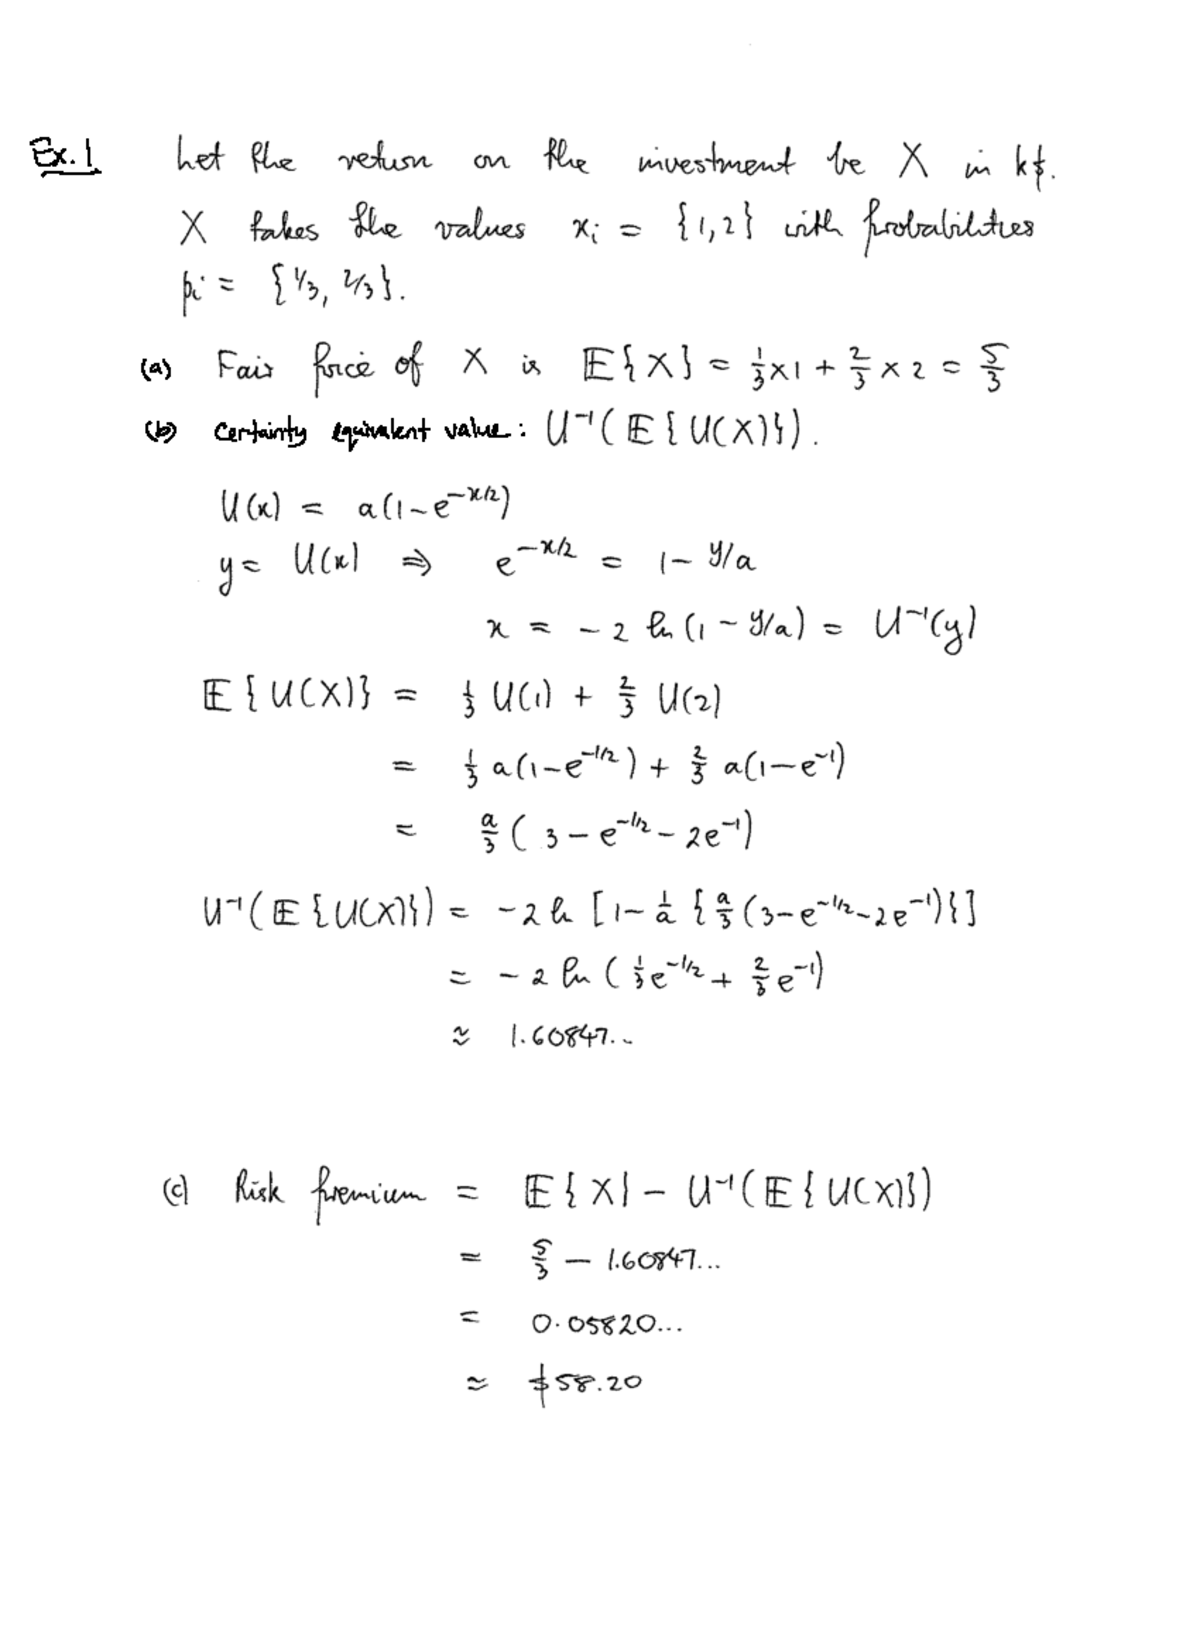 Ex. 1 Let the return on the investment be X in k$.
X takes the values xᵢ = {1,2} with probabilities
pᵢ = {1/3, 2/3}.
(a) Fair price of X is 𝔼{X} = 1/3 × 1 + 2/3 × 2 = 5/3
(b) Certainty equivalent value: U⁻¹(𝔼{U(X)}).
U(x) = a(1-e^(-x/2))
y = U(x) ⇒ e^(-x/2) = 1 - y/a
x = -2 ln(1 - y/a) = U⁻¹(y)
𝔼{U(X)} = 1/3 U(1) + 2/3 U(2)
= 1/3 a(1-e^(-1/2)) + 2/3 a(1-e⁻¹)
= a/3 (3 - e^(-1/2) - 2e⁻¹)
U⁻¹(𝔼{U(X)}) = -2 ln [1 - 1/a {a/3 (3-e^(-1/2)-2e⁻¹)}]
= -2 ln (1/3 e^(-1/2) + 2/3 e⁻¹)
≈ 1.60847..
(c) Risk premium = 𝔼{X} - U⁻¹(𝔼{U(X)})
= 5/3 - 1.60847...
= 0.05820...
≈ $58.20